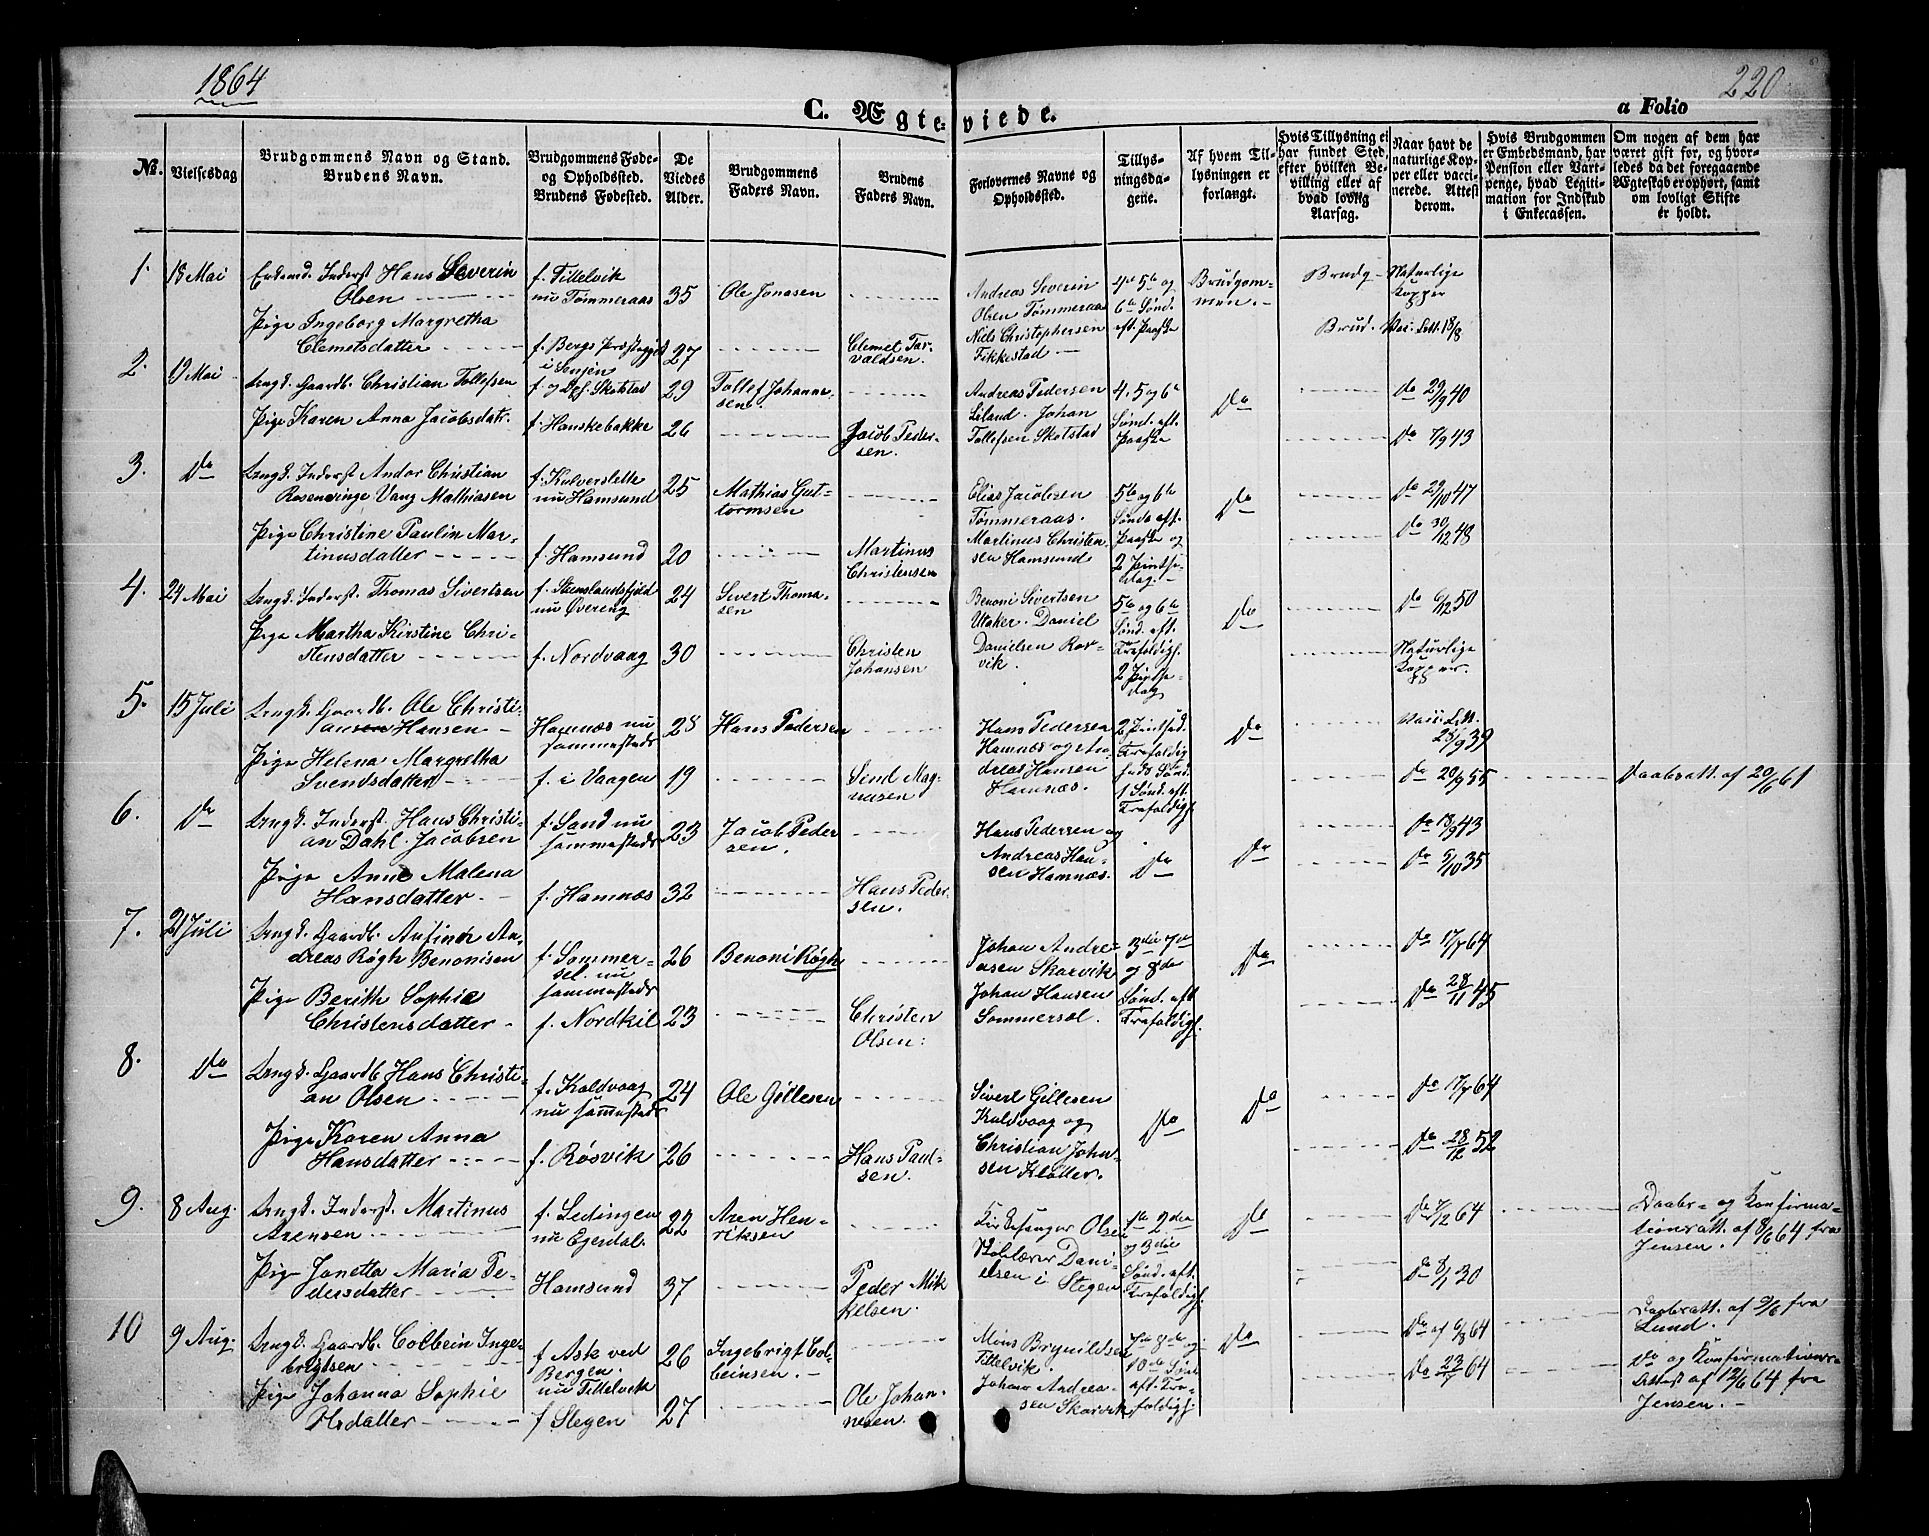 1864
220
C. Ægteviede.
a Folio
No.
Vielsesdag
Brudgommens Navn og Stand.
Brudens Navn.
Brudgommens Føde-
og Opholdssted.
Brudens Fødested.
De
Viedes
Alder.
Brudgommens
Faders Navn.
Brudens
Faders Navn.
Forlovernes Navne og
Opholdssted.
Tillys-
ningsda-
gene.
Af hvem Til-
lysningen er
forlangt.
Hvis Tillysning ei
har fundet Sted,
efter hvilken Be-
villing eller af
hvad lovlig
Aarsag.
Naar havt de
naturlige Kop-
per eller vacci-
nerede. Attest
derom.
Hvis Brudgommen
er Embedsmand, har
Pension eller Varti-
penge, hvad Legiti-
mation for Indskud
i Enkecassen.
Om nogen af dem har
været gift før, og hvor-
ledes da det foregaaende
Ægteskab er ophørt, samt
om lovligt Skifte
er holdt.
1. 18 Mai
Enkemd. Inderst Hans Severin
Olsen
f. Tillelvik
nu Tømmeraas
35
Ole Jonasen
Andreas Severin
Olsen Tømmeraas
Niels Christophersen
Fikkestad
4de 5te og
6te Sønd.
eft. Paaske
Brudgom-
men.
Brudg -
Naturlige
Kopper
Pige Ingeborg Margretha
Clemetsdatter
f. Bergs Præstegjeld
i Senjen
27
Clemet Tor-
valdsen.
Brud.
Vac. Att. 18/8
2. 19 Mai
Ungk. Gaardb. Christian Tollefsen
f. og Opf. Skotstad
29
Tollef Johanne-
sen.
Andreas Pedersen
Leland. Johan
Tollefsen Skotstad
4. 5 og 6te
Sønd. eft.
Paaske
Do
Do 29/9 40
Pige Karen Anna Jacobsdatr.
f. Hanskebakke
26
Jacob Peder-
sen.
Do 7/9 43
3. Do
Ungk. Inderst Andor Christian
Rosenvinge Vang Mathiasen
f. Kulverslette
nu Hamsund
25
Mathias Gut-
tormsen
Elias Jacobsen
Tømmeraas.
Martinus Christen-
sen Hamsund
5te og 6te
Sønd. eft.
Paaske og
2 Pintse-
dag.
Do
Do 29/10 47
Pige Christine Paulin Mar-
tinusdatter
f. Hamsund
20
Martinus
Christensen
Do 30/12 48
4. 24 Mai
Ungk. Inderst. Thomas Sivertsen
f. Stenslandsfjeld
nu Øvereng
24
Sivert Thoma-
sen
Benoni Sivertsen
Utaker. Daniel
Danielsen Ror-
vik.
5te og 6te
Sønd. eft.
Trefoldigh.
2 Pintse-
dag
Do
Do 6/12 50
Pige Martha Kirstine Chri-
stensdatter
f. Nordvaag
30
Christen
Johansen
Naturlige
Kopper.
5. 15 Juli
Ungk. Gaardb. Ole Christi-
ansen Hansen
Hamnæs nu
sammesteds
28
Hans Pedersen
Hans Pedersen
Hamnæs og An-
dreas Hansen
Hamnæs.
2 Pintsed.
Trefoldig
heds Sønd.
1 Sønd. eft.
Trefoldigh.
Do
Vacc. Att.
28/9 39
Pige Helena Margretha
Svendsdatter
f. i Vaagen
19
Send Mag-
nusen
Do 20/9 55
Daabsatt. af 20/6 61
6. Do
Ungk. Inderst. Hans Christi-
an Dahl. Jacobsen
f. Sand nu
sammesteds
23
Jacob Peder
sen.
Hans Pedersen og
Andreas Han-
sen Hamnæs.
Do
Do
Do 18/9 43
Pige Anne Malena
Hansdatter.
f. Hamnæs
32
Hans Peder-
sen.
Do 5/10 35
7. 21 Juli
Ungk. Gaardb. Anfind An-
dreas Røgh Benonisen
f. Sommer-
sel. nu
sammesteds
26
Benoni Røgh
Johan Andre-
asen Skarvik
Johan Hansen
Sommersel.
3die 7de
og 8de
Sønd. eft
Trefoldigh.
Do
Do 17/7 64
Pige Berith Sophie
Christensdatter
f. Nordkil
23
Christen
Olsen:
Do 28/11 45
8. Do
Ungk. Gaardb Hans Christi-
an Olsen
f. Kaldvaag
nu sammesteds
24
Ole Gillesen
Sivert Gillesen
Kaldvaag og
Christian John-
sen Kløtter.
Do
Do
Do 17/7 64
Pige Karen Anna
Hansdatter
f. Røsvik
26
Hans Paul-
sen.
Do 28/12 52
9. 8 Aug.
Ungk. Inderst. Martinus
Arensen
f. Lødingen
nu Egerdal.
22
Aren Hen-
riksen
Kirkesanger Olsen
Skolelærer Dani-
elsen i Stegen
1ste 2den
og 3die
Sønd. eft.
Trefoldigh.
Do
Do 7/12 64
Daabs- og Konfirma-
tionsatt. af 8/6 64 fra
Jensen.
Pige Janetta Maria Pe-
dersdatter
Hamsund
37
Peder Mik
kelsen.
Do 8/1 30
10 9 Aug.
Ungk. Gaardb. Colbein Inge-
brigtsen
f Ask ved
Bergen.
nu Tillelvik
26
Ingebrigt Col-
beinsen.
Mons Brynildsen
Tillelvik.
Johan Andrea-
sen Skarvik
7de 8de og
10de Sønd
eft. Tre-
foldigh.
Do
Do af 6/8 64
Daabsatt. af 9/6 fra
Lund.
Pige Johanna Sophie
Olsdatter
f Stegen
27
Ole Johan-
nesen.
Do 23/7 64
Do og Konfirmations-
Attest af 12/6 64 fra
Jensen.